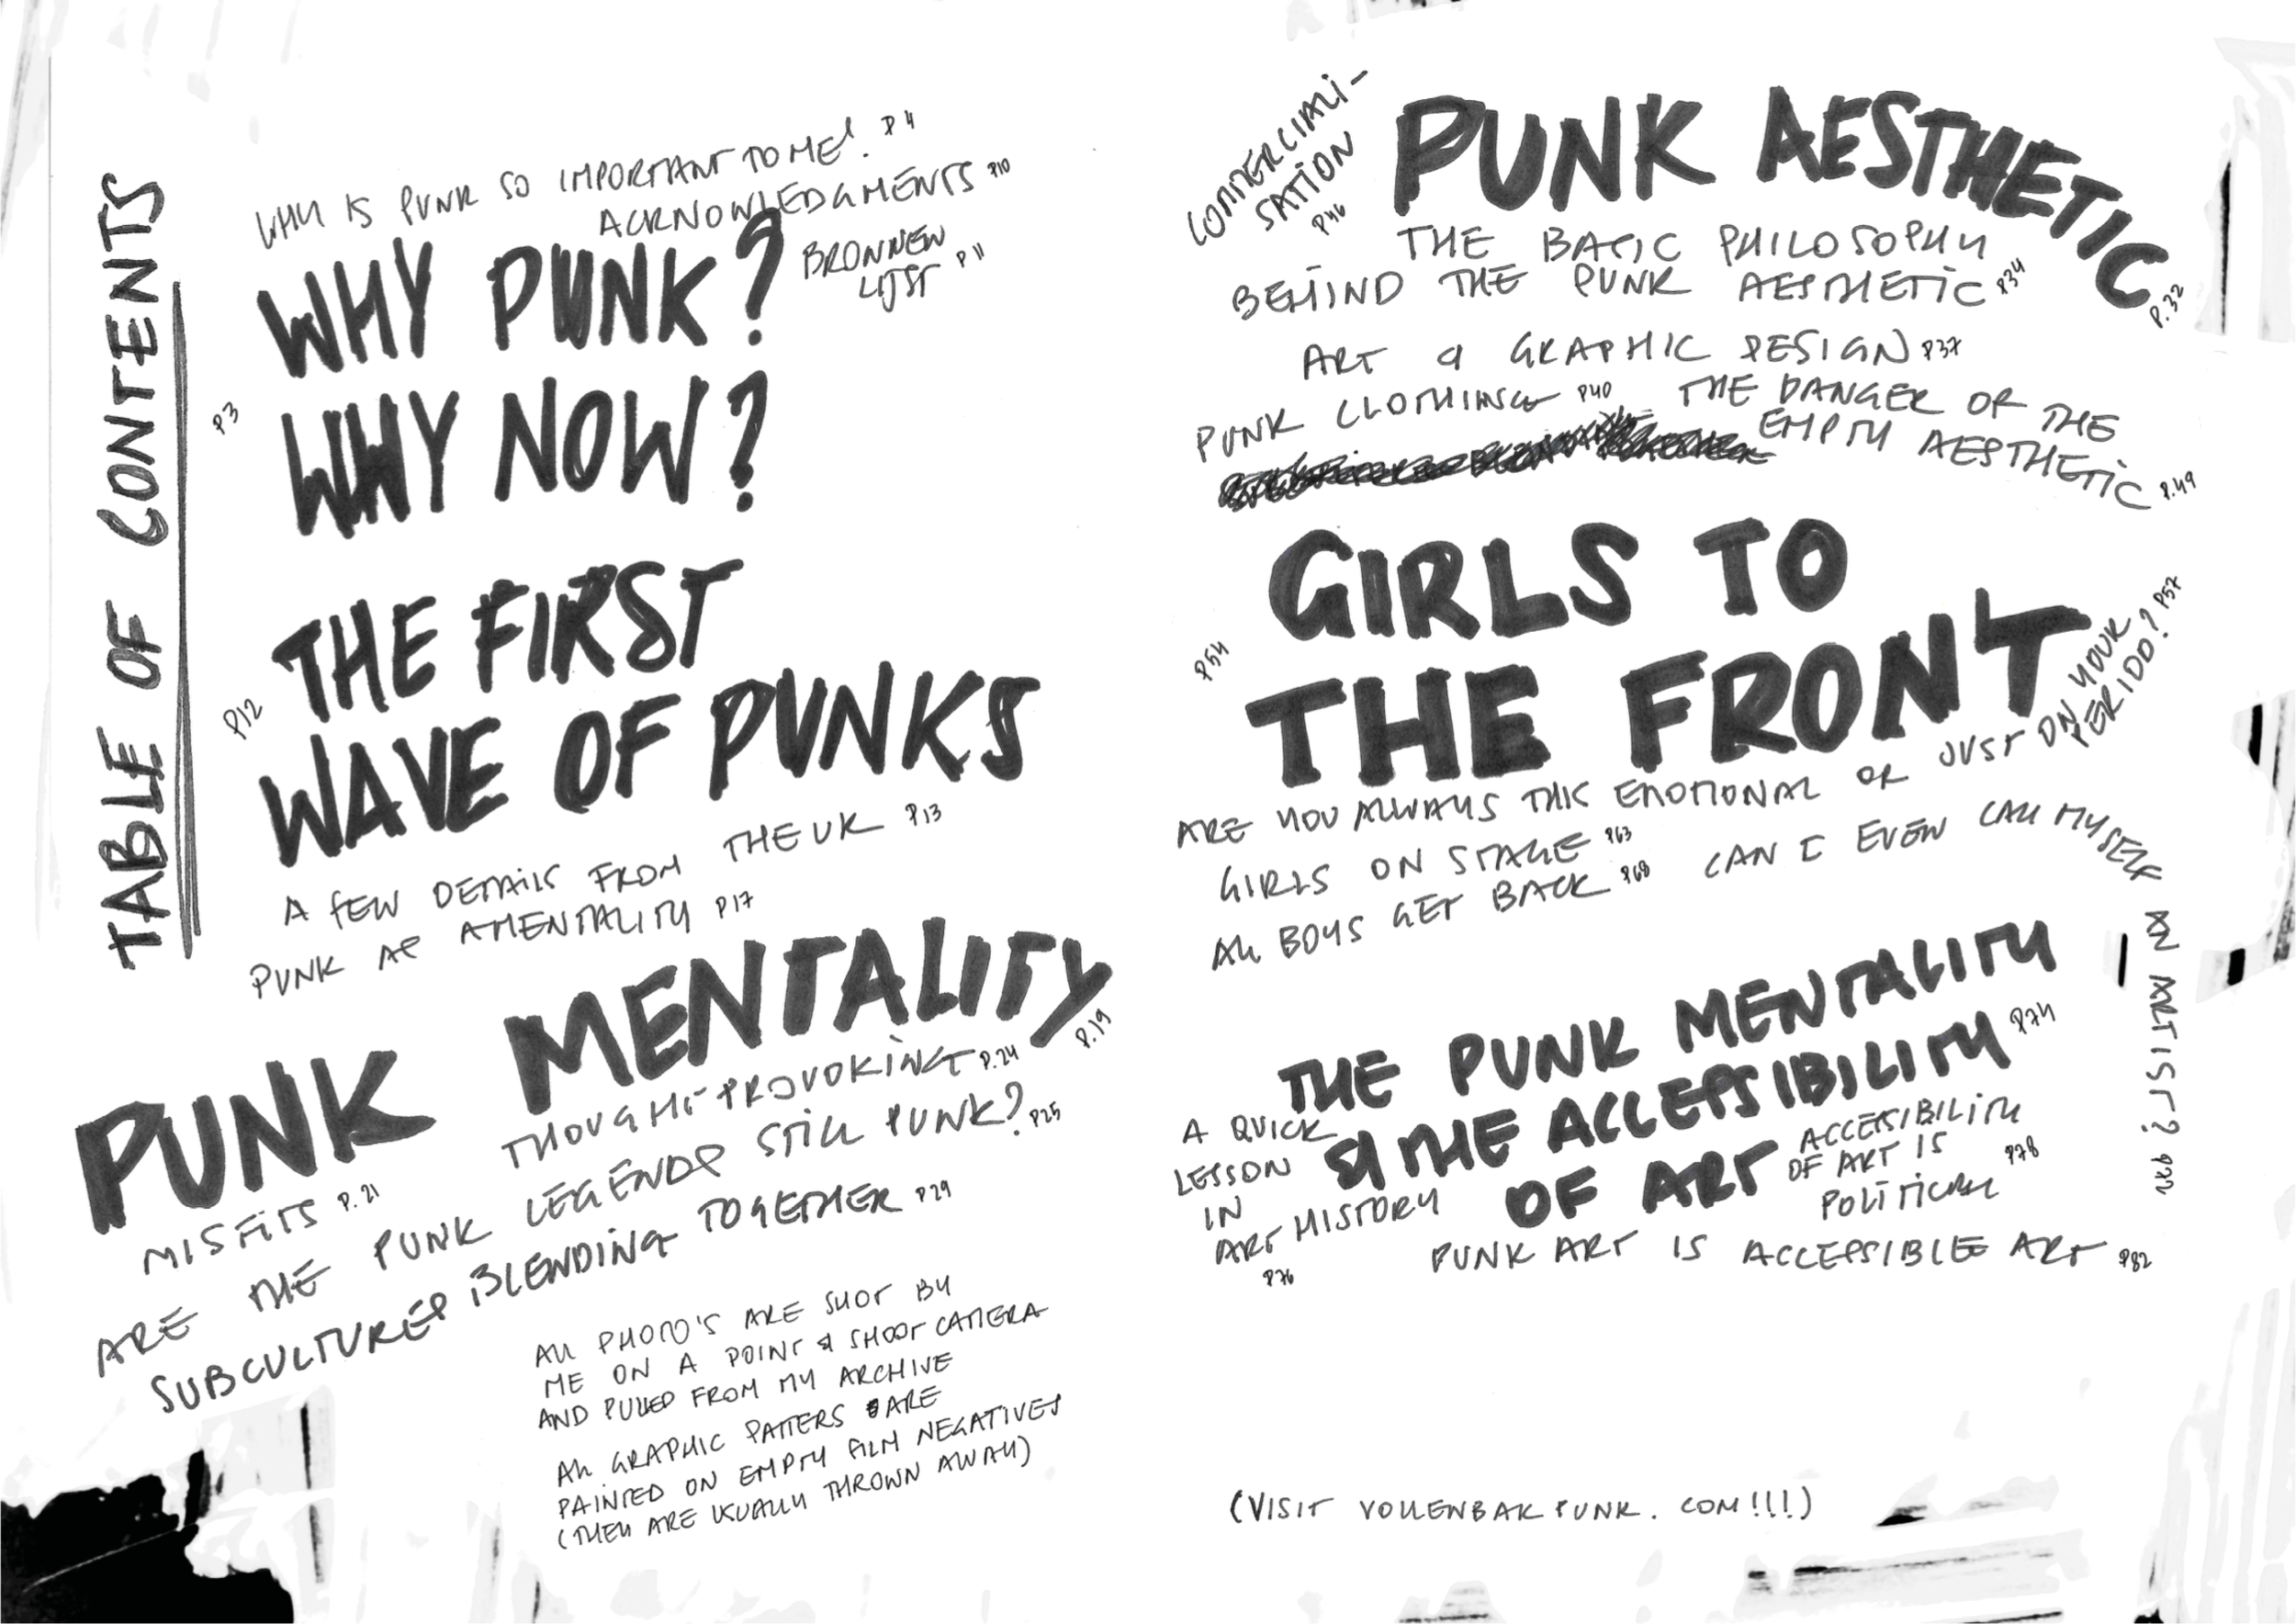 TABLE OF CONTENTS
WHY IS PUNK SO IMPORTANT TO ME? P4
ACKNOWLEDGMENTS P10
BRONNEN
LIJST P11
WHY PUNK?
WHY NOW?
P3
THE FIRST
WAVE OF PUNKS
P12
A FEW DETAILS FROM THE UK P13
PUNK AS A MENTALITY P17
PUNK MENTALITY
P.19
MISFITS P.21
THOUGHT PROVOKING P.24
ARE THE PUNK LEGENDS STILL PUNK? P25
SUBCULTURES BLENDING TOGETHER P29
ALL PHOTO'S ARE SHOT BY
ME ON A POINT & SHOOT CAMERA
AND PULLED FROM MY ARCHIVE
ALL GRAPHIC PATTERS ARE
PAINTED ON EMPTY FILM NEGATIVES
(THEY ARE USUALLY THROWN AWAY)
COMMERCIALI-
SATION
P46
PUNK AESTHETIC
P.32
THE BASIC PHILOSOPHY
BEHIND THE PUNK AESTHETIC P34
ART & GRAPHIC DESIGN P37
PUNK CLOTHING P40
THE DANGER OF THE
EMPTY AESTHETIC P.49
GIRLS TO
THE FRONT
P54
ARE YOU ALWAYS THIS EMOTIONAL OR JUST ON YOUR
PERIOD? P57
GIRLS ON STAGE P63
ALL BOYS GET BACK P68
CAN I EVEN CALL MYSELF AN ARTIST? P72
THE PUNK MENTALITY
& THE ACCESSIBILITY
OF ART
P74
A QUICK
LESSON
IN
ART HISTORY
P76
ACCESIBILITY
OF ART IS
POLITICAL
P78
PUNK ART IS ACCESSIBLE ART P82
(VISIT VOLLENBAKPUNK.COM!!!)